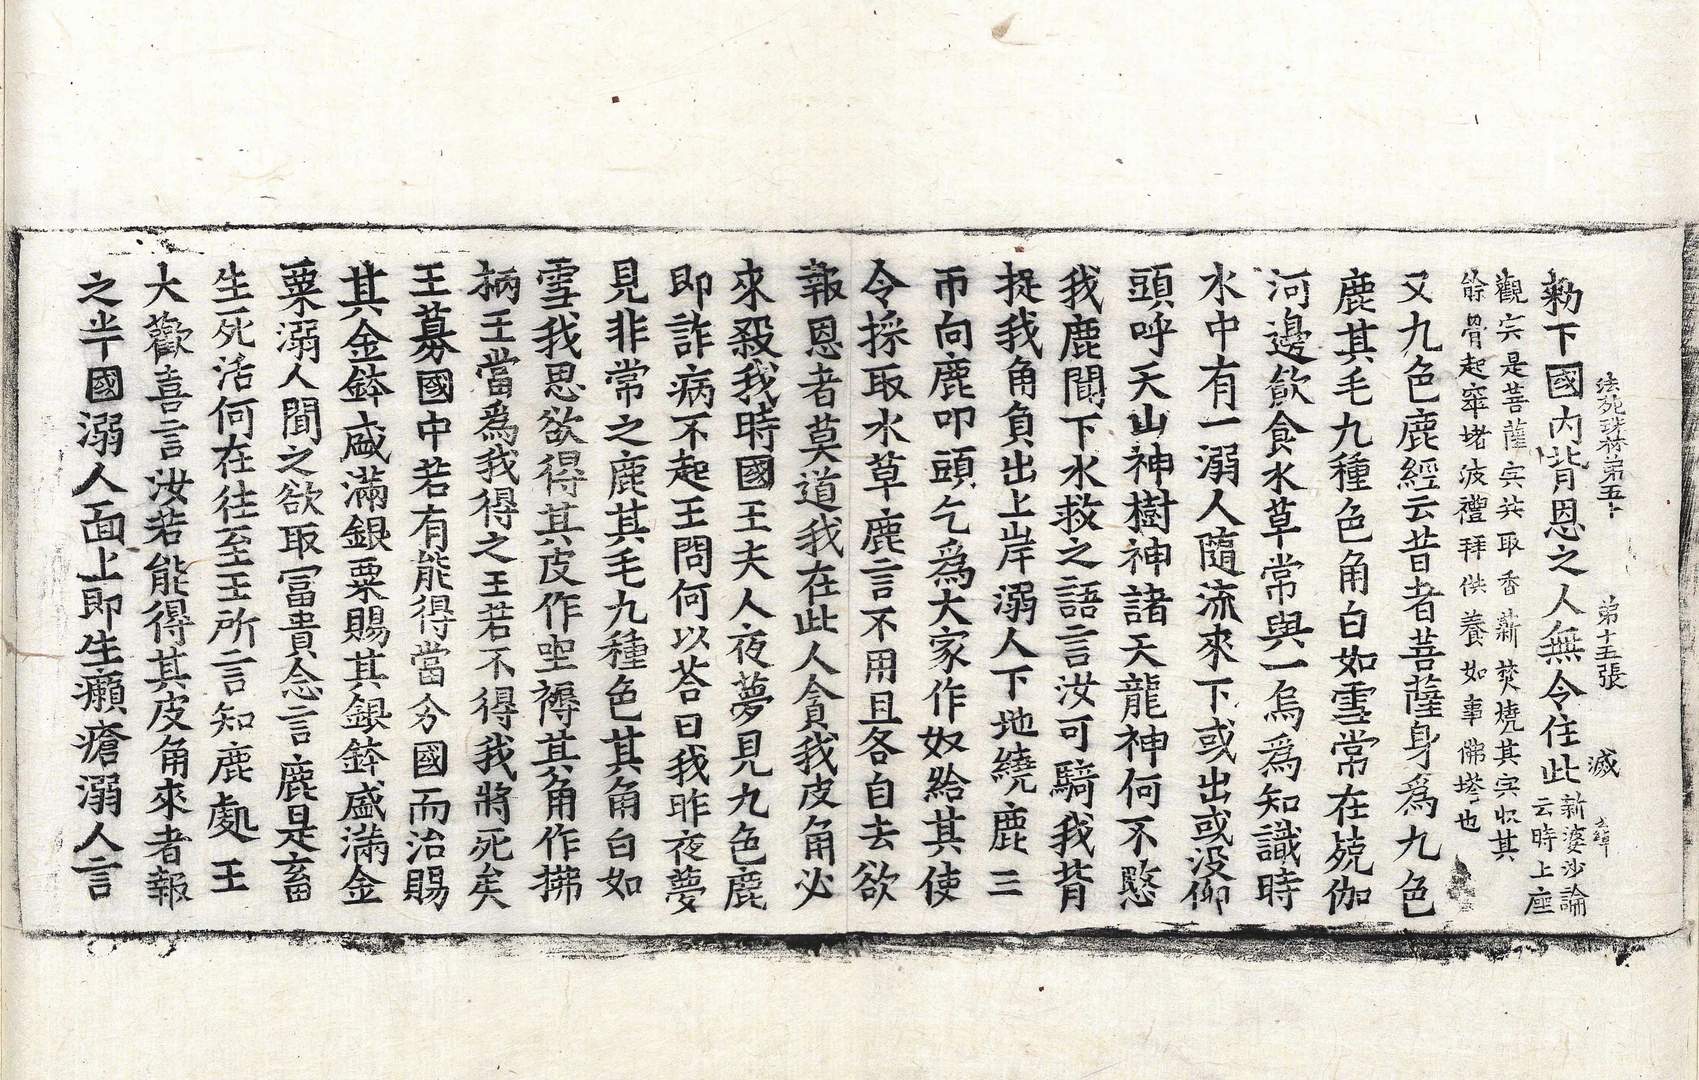 法苑珠林弟五十　弟十五張　滅
勑下國內背恩之人無令住此新婆沙論云時上座
觀宍是菩薩宍共取香薪焚燒其宍收其
餘骨起窣堵波禮拜供養如事佛塔也
又九色鹿經云昔者菩薩身爲九色
鹿其毛九種色角白如雪常在兢伽
河邊飮食水草常與一烏爲知識時
水中有一溺人隨流來下或出或没仰
頭呼天山神樹神諸天龍神何不愍
我鹿聞下水救之語言汝可騎我背
捉我角負出上岸溺人下地繞鹿三
帀向鹿叩頭乞爲大家作奴給其使
令採取水草鹿言不用且各自去欲
報恩者莫道我在此人貪我皮角必
來殺我時國王夫人夜夢見九色鹿
即詐病不起王問何以荅曰我昨夜夢
見非常之鹿其毛九種色其角白如
雪我思欲得其皮作坐褥其角作拂
柄王當爲我得之王若不得我將死矣
王募國中若有能得當分國而治賜
其金鉢盛滿銀粟賜其銀鉢盛滿金
粟溺人聞之欲取冨貴念言鹿是畜
生死活何在往至王所言知鹿處王
大歡喜言汝若能得其皮角來者報
之半國溺人面上即生癩瘡溺人言